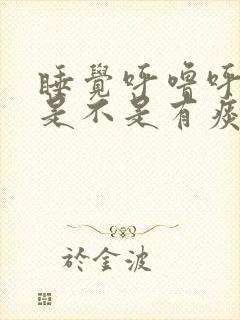 睡覺呼嚕呼
是不是有痰
於金波